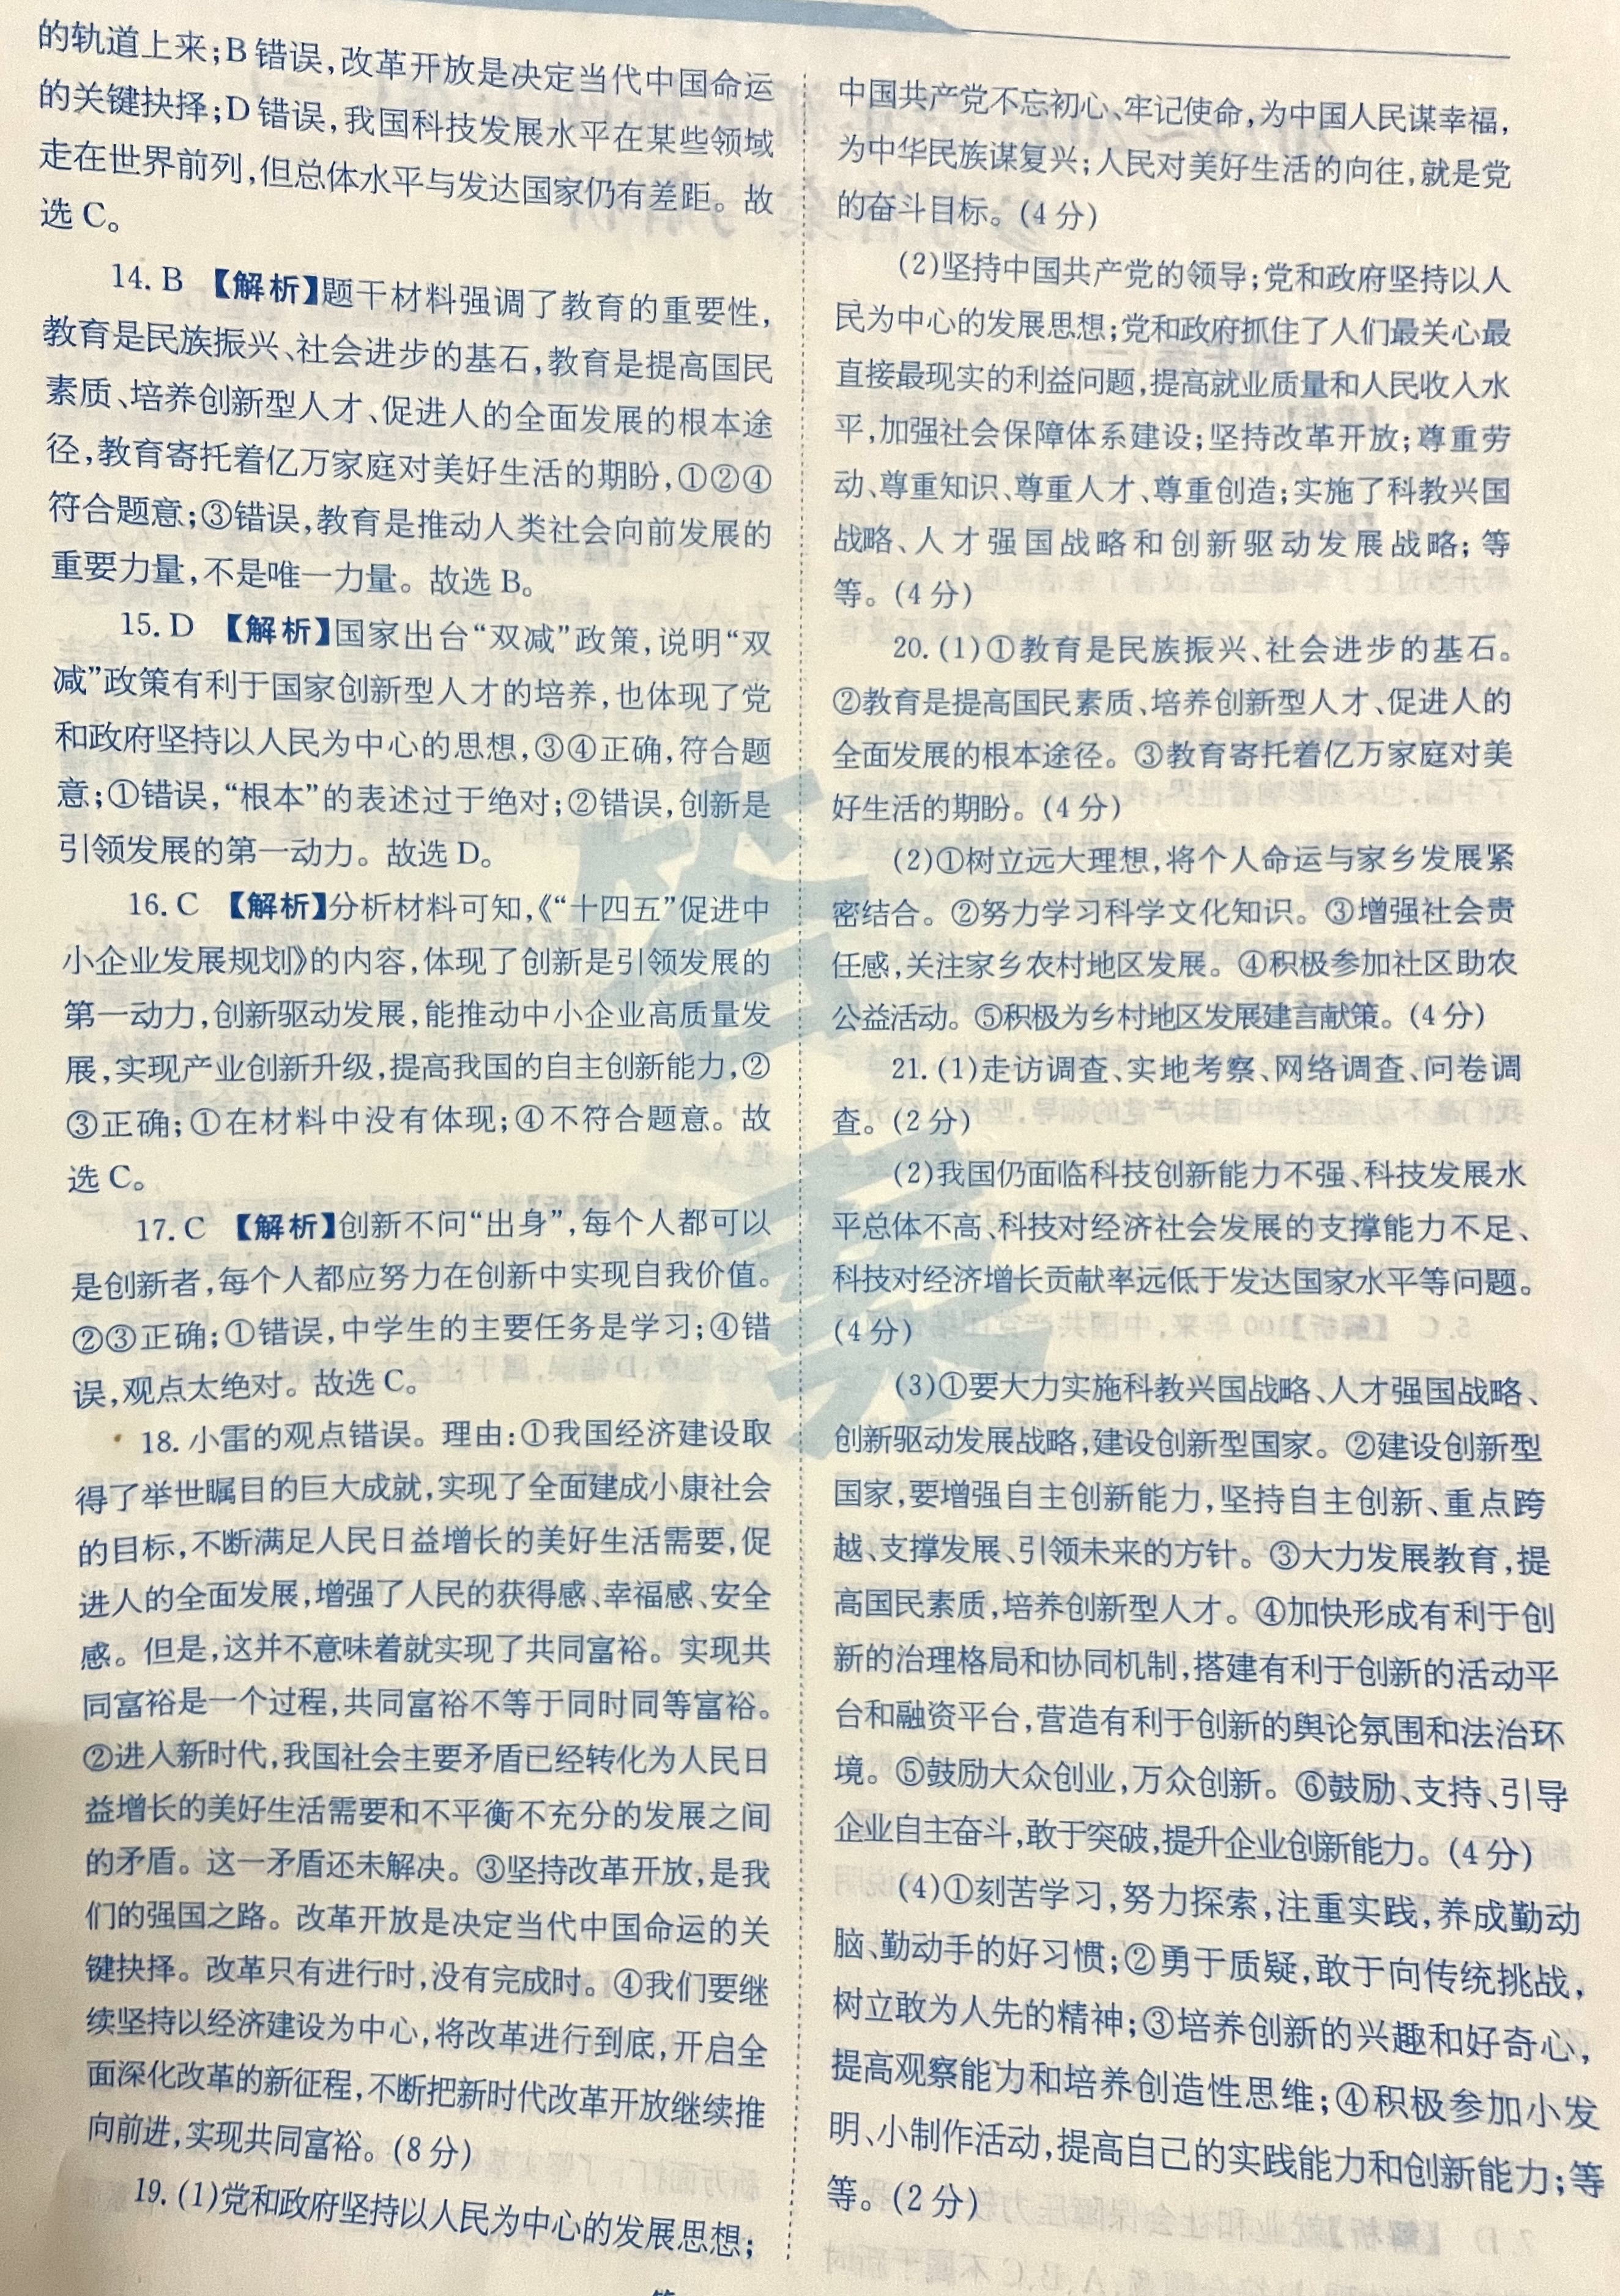 的轨道上来;B错误,改革开放是决定当代中国命运
的关键抉择;D错误,我国科技发展水平在某些领域
走在世界前列,但总体水平与发达国家仍有差距。故
选C。
14. B 【解析】题干材料强调了教育的重要性,
教育是民族振兴、社会进步的基石,教育是提高国民
素质、培养创新型人才、促进人的全面发展的根本途
径,教育寄托着亿万家庭对美好生活的期盼,①②④
符合题意;③错误,教育是推动人类社会向前发展的
重要力量,不是唯一力量。故选B。
15. D 【解析】国家出台“双减”政策,说明“双
减”政策有利于国家创新型人才的培养,也体现了党
和政府坚持以人民为中心的思想,③④正确,符合题
意;①错误,“根本”的表述过于绝对;②错误,创新是
引领发展的第一动力。故选D。
16. C 【解析】分析材料可知,《“十四五”促进中
小企业发展规划》的内容,体现了创新是引领发展的
第一动力,创新驱动发展,能推动中小企业高质量发
展,实现产业创新升级,提高我国的自主创新能力,②
③正确;①在材料中没有体现;④不符合题意。故
选C。
17. C 【解析】创新不问“出身”,每个人都可以
是创新者,每个人都应努力在创新中实现自我价值。
②③正确;①错误,中学生的主要任务是学习;④错
误,观点太绝对。故选C。
18. 小雷的观点错误。理由:①我国经济建设取
得了举世瞩目的巨大成就,实现了全面建成小康社会
的目标,不断满足人民日益增长的美好生活需要,促
进人的全面发展,增强了人民的获得感、幸福感、安全
感。但是,这并不意味着就实现了共同富裕。实现共
同富裕是一个过程,共同富裕不等于同时同等富裕。
②进入新时代,我国社会主要矛盾已经转化为人民日
益增长的美好生活需要和不平衡不充分的发展之间
的矛盾。这一矛盾还未解决。③坚持改革开放,是我
们的强国之路。改革开放是决定当代中国命运的关
键抉择。改革只有进行时,没有完成时。④我们要继
续坚持以经济建设为中心,将改革进行到底,开启全
面深化改革的新征程,不断把新时代改革开放继续推
向前进,实现共同富裕。(8分)
19. (1)党和政府坚持以人民为中心的发展思想;
中国共产党不忘初心、牢记使命,为中国人民谋幸福,
为中华民族谋复兴;人民对美好生活的向往,就是党
的奋斗目标。(4分)
(2)坚持中国共产党的领导;党和政府坚持以人
民为中心的发展思想;党和政府抓住了人们最关心最
直接最现实的利益问题,提高就业质量和人民收入水
平,加强社会保障体系建设;坚持改革开放;尊重劳
动、尊重知识、尊重人才、尊重创造;实施了科教兴国
战略、人才强国战略和创新驱动发展战略;等
等。(4分)
20. (1)①教育是民族振兴、社会进步的基石。
②教育是提高国民素质、培养创新型人才、促进人的
全面发展的根本途径。③教育寄托着亿万家庭对美
好生活的期盼。(4分)
(2)①树立远大理想,将个人命运与家乡发展紧
密结合。②努力学习科学文化知识。③增强社会责
任感,关注家乡农村地区发展。④积极参加社区助农
公益活动。⑤积极为乡村地区发展建言献策。(4分)
21. (1)走访调查、实地考察、网络调查、问卷调
查。(2分)
(2)我国仍面临科技创新能力不强、科技发展水
平总体不高、科技对经济社会发展的支撑能力不足、
科技对经济增长贡献率远低于发达国家水平等问题。
(4分)
(3)①要大力实施科教兴国战略、人才强国战略、
创新驱动发展战略,建设创新型国家。②建设创新型
国家,要增强自主创新能力,坚持自主创新、重点跨
越、支撑发展、引领未来的方针。③大力发展教育,提
高国民素质,培养创新型人才。④加快形成有利于创
新的治理格局和协同机制,搭建有利于创新的活动平
台和融资平台,营造有利于创新的舆论氛围和法治环
境。⑤鼓励大众创业,万众创新。⑥鼓励、支持、引导
企业自主奋斗,敢于突破,提升企业创新能力。(4分)
(4)①刻苦学习,努力探索,注重实践,养成勤动
脑、勤动手的好习惯;②勇于质疑,敢于向传统挑战,
树立敢为人先的精神;③培养创新的兴趣和好奇心,
提高观察能力和培养创造性思维;④积极参加小发
明、小制作活动,提高自己的实践能力和创新能力;等
等。(2分)
答案